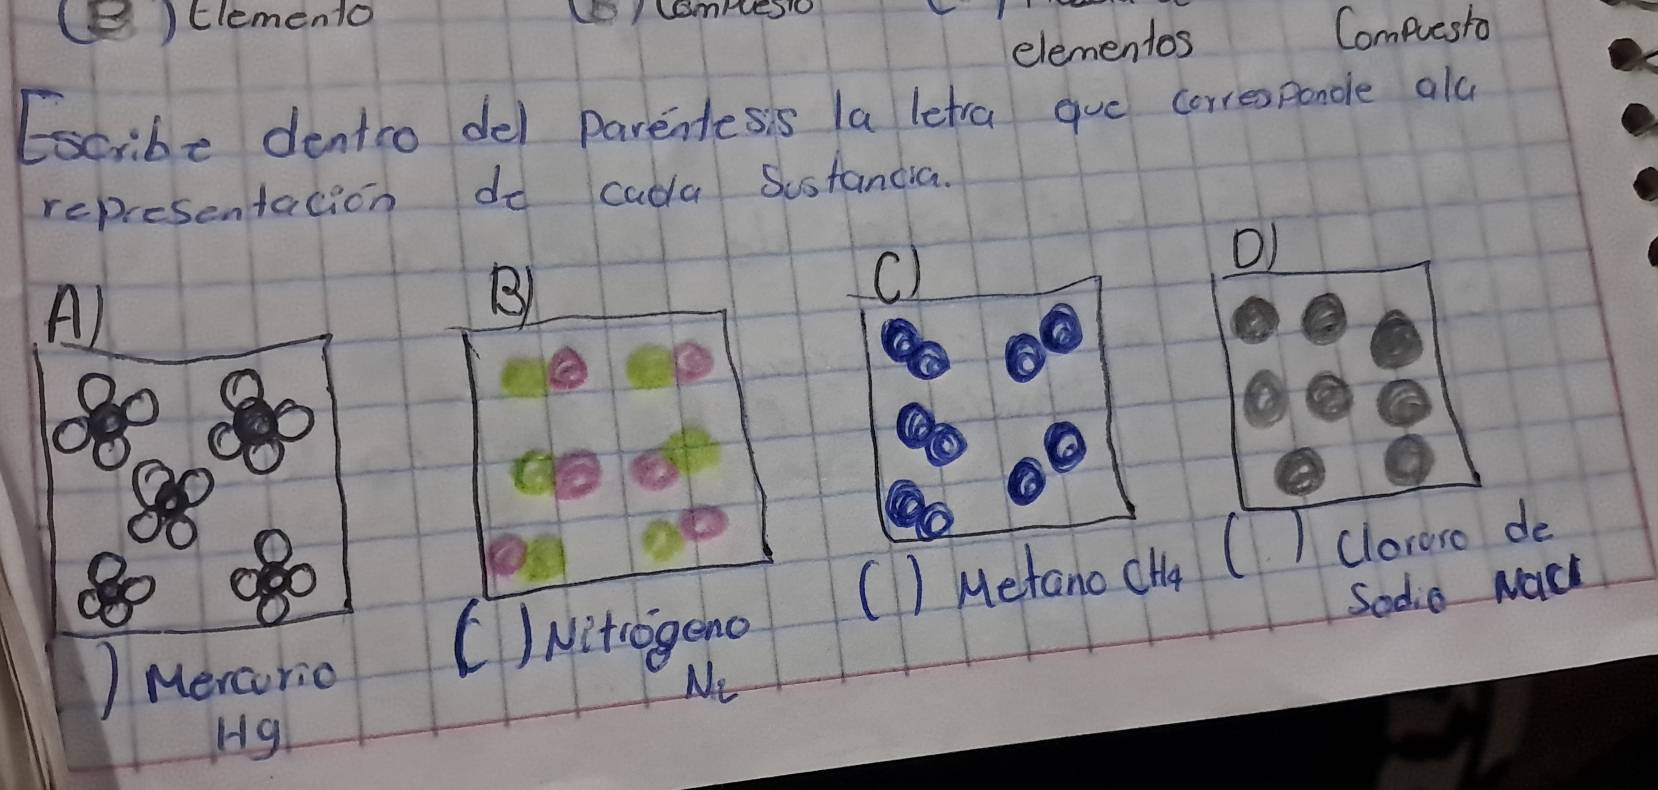 (B) Elemento
elementos
Compuesto
Escribe dentro del paréntesis la letra que corresponde ala
representación de cada Sustancia.
A)
B)
C)
D)
) Mercurio
Hg
( ) Nitrógeno
N2
( ) Metano CH4
( ) Cloruro de
Sodio NaCl